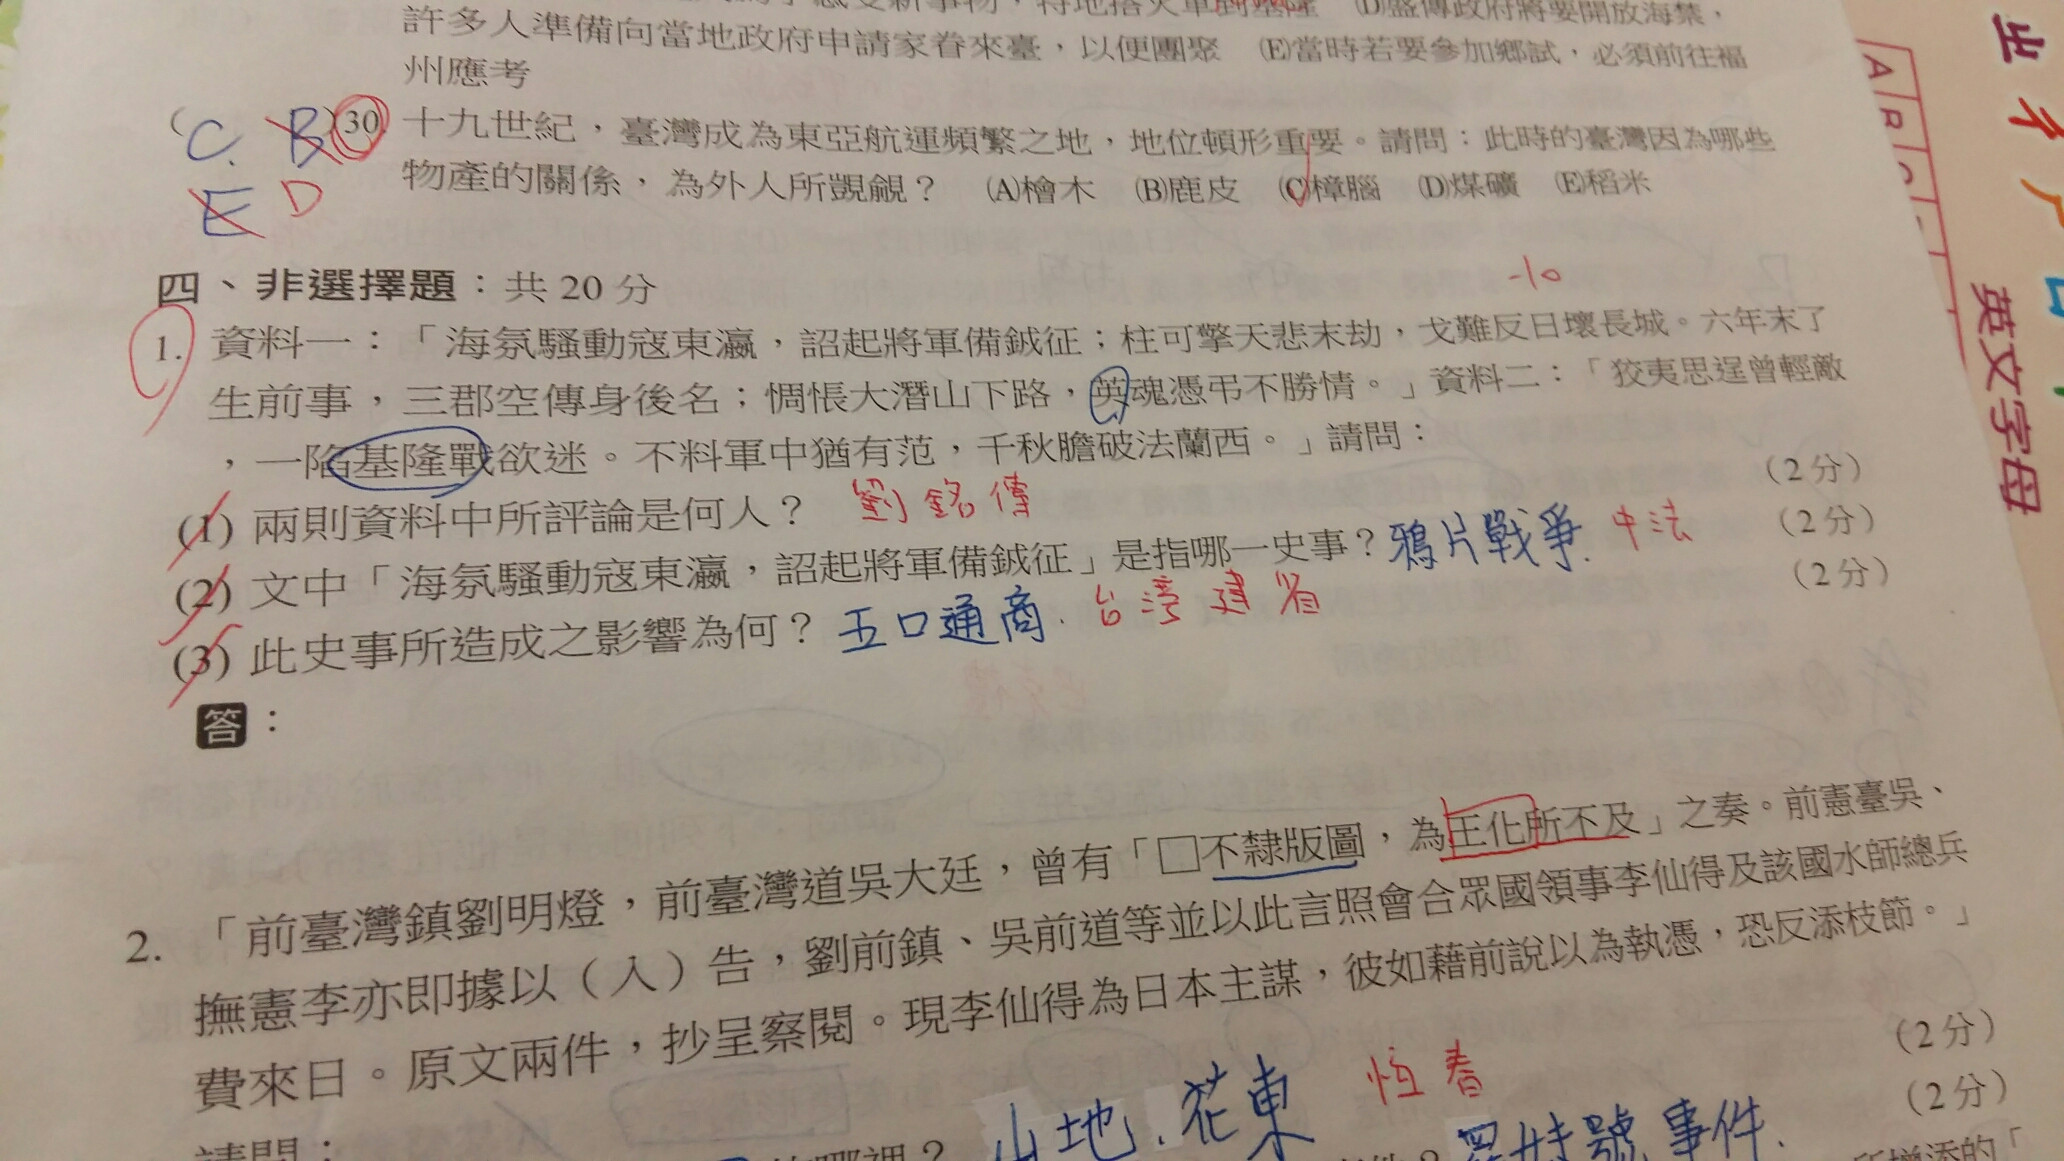 許多人準備向當地政府申請家眷來臺，以便團聚　(E)當時若要參加鄉試，必須前往福
州應考
( C. B ) 30. 十九世紀，臺灣成為東亞航運頻繁之地，地位頓形重要。請問：此時的臺灣因為哪些
E D 物產的關係，為外人所覬覦？　(A)檜木　(B)鹿皮　(C)樟腦　(D)煤礦　(E)稻米
四、非選擇題：共 20 分
-10
1. 資料一：「海氛騷動寇東瀛，詔起將軍備鉞征；柱可擎天悲末劫，戈難反日壞長城。六年末了
生前事，三郡空傳身後名；惆悵大潛山下路，英魂憑弔不勝情。」資料二：「狡夷思逞曾輕敵
，一陷基隆戰欲迷。不料軍中猶有范，千秋膽破法蘭西。」請問：
(1) 兩則資料中所評論是何人？ 劉銘傳 (2 分)
(2) 文中「海氛騷動寇東瀛，詔起將軍備鉞征」是指哪一史事？ 鴉片戰爭. 中法 (2 分)
(3) 此史事所造成之影響為何？ 五口通商. 台湾建省 (2 分)
答：
2. 「前臺灣鎮劉明燈，前臺灣道吳大廷，曾有「□不隸版圖，為王化所不及」之奏。前憲臺吳、
撫憲李亦即據以（入）告，劉前鎮、吳前道等並以此言照會合眾國領事李仙得及該國水師總兵
費來日。原文兩件，抄呈察閱。現李仙得為日本主謀，彼如藉前說以為執憑，恐反添枝節。」
請問： (2 分)
山地.花東 恆春 (2 分)
號事件.
英文字母
A